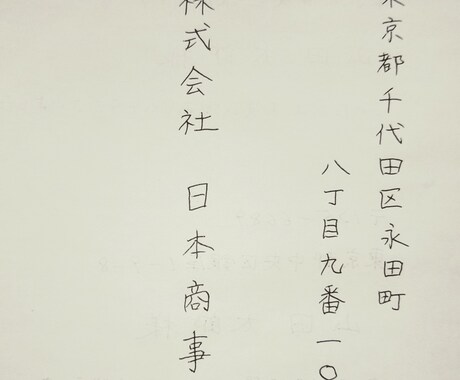 東京都千代田区永田町
八丁目九番一〇
株式会社 日本商事